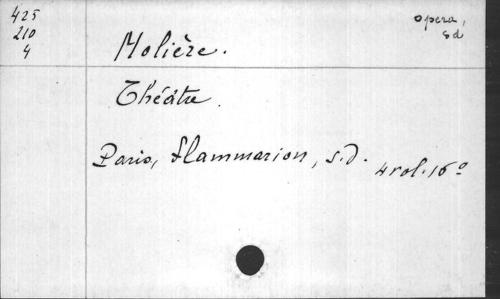 425
210
4
opera,
sd
Molière.
Théâtre.
Paris, Flammarion, s.d. 4 vol. 16º